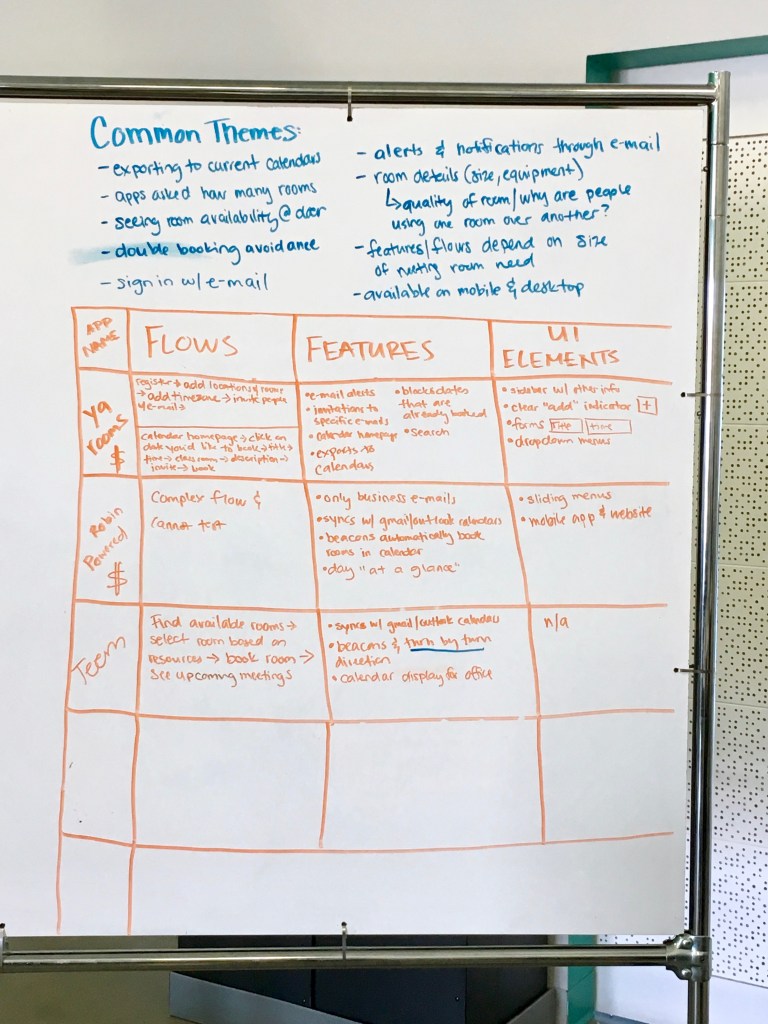 Common Themes:
- exporting to current calendars
- apps asked how many rooms
- seeing room availability @ door
- double booking avoidance
- sign in w/ e-mail
- alerts & notifications through e-mail
- room details (size, equipment)
↳ quality of room/why are people
using one room over another?
- features/flows depend on size
of meeting room need
- available on mobile & desktop
APP
NAME
FLOWS
FEATURES
UI
ELEMENTS
Ya
rooms
$
register → add locations & rooms
→ add timezone → invite people
w/ e-mail →
calendar homepage → click on
date you'd like to book → title →
time → class room → description →
invite → book
• e-mail alerts
• invitations to
specific e-mails
• calendar homepage
• exports to
calendars
• blocks dates
that are
already booked
• search
• sidebar w/ other info
• clear "add" indicator +
• forms title time
• dropdown menus
Robin
Powered
$
Complex flow &
cannot test
• only business e-mails
• syncs w/ gmail/outlook calendars
• beacons automatically book
rooms in calendar
• day "at a glance"
• sliding menus
• mobile app & website
Teem
Find available rooms →
select room based on
resources → book room →
see upcoming meetings
• syncs w/ gmail/outlook calendars
• beacons & turn by turn
direction
• calendar display for office
n/a